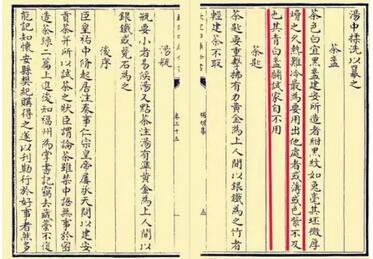 湯中揉洗以羃之
茶盞
茶色白宜黑盞建安所造者紺黑紋如兔毫其坯微厚
熁之久熱難冷最為要用出他處者或薄或色紫不及
也其青白盞鬬試家自不用
茶匙
茶匙要重擊拂有力黃金為上人間以銀鐵為之竹者
輕建茶不取
端明集
湯瓶
瓶要小者易候湯又點茶注湯有準黃金為上人間以
銀鐵或瓷石為之
後序
臣皇祐中脩起居注奏事仁宗皇帝屢承天問以建安
貢茶并所以試茶之狀臣謂論茶雖禁中語無事於密
造茶錄二篇上進後知福州為掌書記竊去藏藁不復
能記知懷安縣樊紀購得之遂以刊勒行於好事者然多
卷三十五